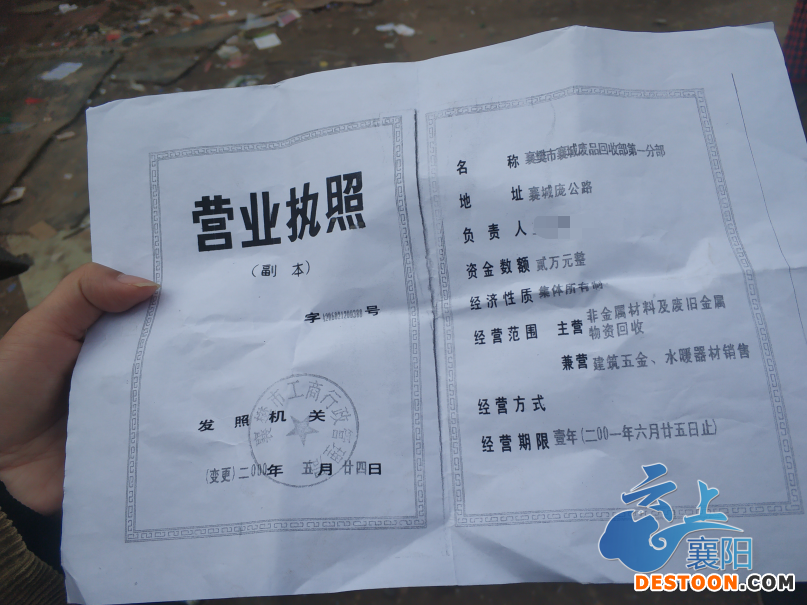 营业执照
（副 本）
字 号
发 照 机 关
襄樊市工商行政管理
(变更)二000年 五月廿四日
名 称 襄樊市襄城废品回收部第一分部
地 址 襄城庞公路
负 责 人
资金数额 贰万元整
经济性质 集体所有制
经营范围 主营 非金属材料及废旧金属
物资回收
兼营 建筑五金、水暖器材销售
经营方式
经营期限 壹年(二00一年六月廿五日止)
云上
襄阳
DESTOON.COM